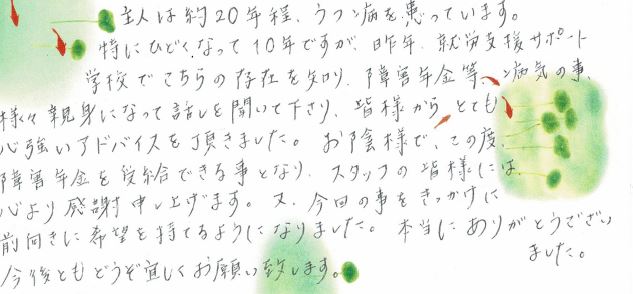 主人は約20年程、うつ病を患っています。
特にひどくなって10年ですが、昨年、就労支援サポート
学校でこちらの存在を知り、障害年金等、病気の事、
様々親身になって話しを聞いて下さり、皆様からとても
心強いアドバイスを頂きました。お陰様で、この度、
障害年金を受給できる事となり、スタッフの皆様には、
心より感謝申し上げます。又、今回の事をきっかけに
前向きに希望を持てるようになりました。本当にありがとうござい
ました。
今後ともどうぞ宜しくお願い致します。